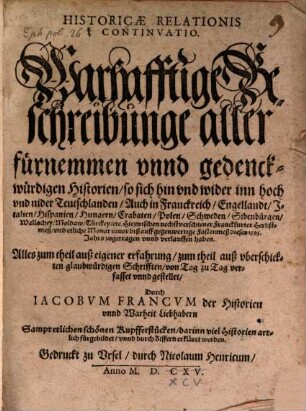 HISTORICÆ RELATIONIS
CONTINVATIO.
Eph. pol. 26
Warhafftige Be-
schreibunge aller
fürnemmen vnnd gedenck-
würdigen Historien/ so sich hin vnd wider inn hoch
vnd nider Teutschlanden/ Auch in Franckreich/ Engellandt/ J-
talien/ Hispanien/ Hungern/ Crabaten/ Polen/ Schweden/ Sibenbürgen/
Wallachey/ Moldaw/ Thürckey/ etc. Hiezwischen nechstverschiener Franckfurter Herbst-
meß/ vnd etliche Monat zuuor biß auff gegenwertige Fastenmeß dieses 1595.
Jahrs zugetragen vnnd verlauffen haben.
Alles zum theil auß eigener erfahrung/ zum theil auß vberschick-
ten glaubwürdigen Schrifften/ von Tag zu Tag ver-
fasset vnnd gestellet/
Durch
IACOBVM FRANCVM der Historien
vnnd Warheit Liebhabern
Sampt etlichen schönen Kupfferstücken/ darinn viel Historien art-
lich fürgebildet/ vnnd durch Ziffern erkläret werden.
Gedruckt zu Vrsel/ durch Nicolaum Henricum/
Anno M. D. CXV.
XCV